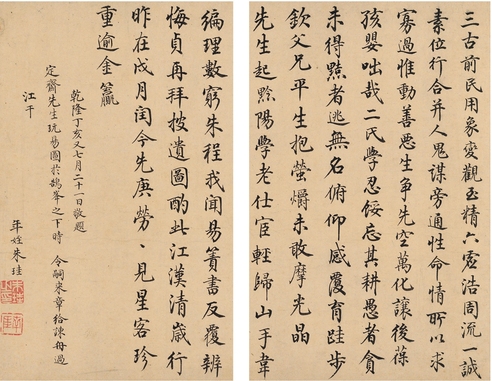 三古前民用象變觀玉精六虛浩周流一誠
素位行合并人鬼謀旁通性命情所以求
寡過惟動善惡生爭先空萬化讓後葆
孩嬰咄哉二氏學忍餒忘其耕愚者貪
未得黠者逃無名俯仰感覆育跬步
欽父兄平生抱螢爝未敢摩光晶
先生起黔陽學老仕宦輕歸山手韋
編理數窮朱程我聞易簀書反覆辨
悔貞再拜披遺圖酌此江漢清歲行
昨在戌月閏今先庚勞勞見星客珍
重逾金籯
乾隆丁亥又七月二十一日敬題
定齋先生玩易圖於鵠峯之下時 令嗣朱章給諫舟過
江干
年姪朱珪